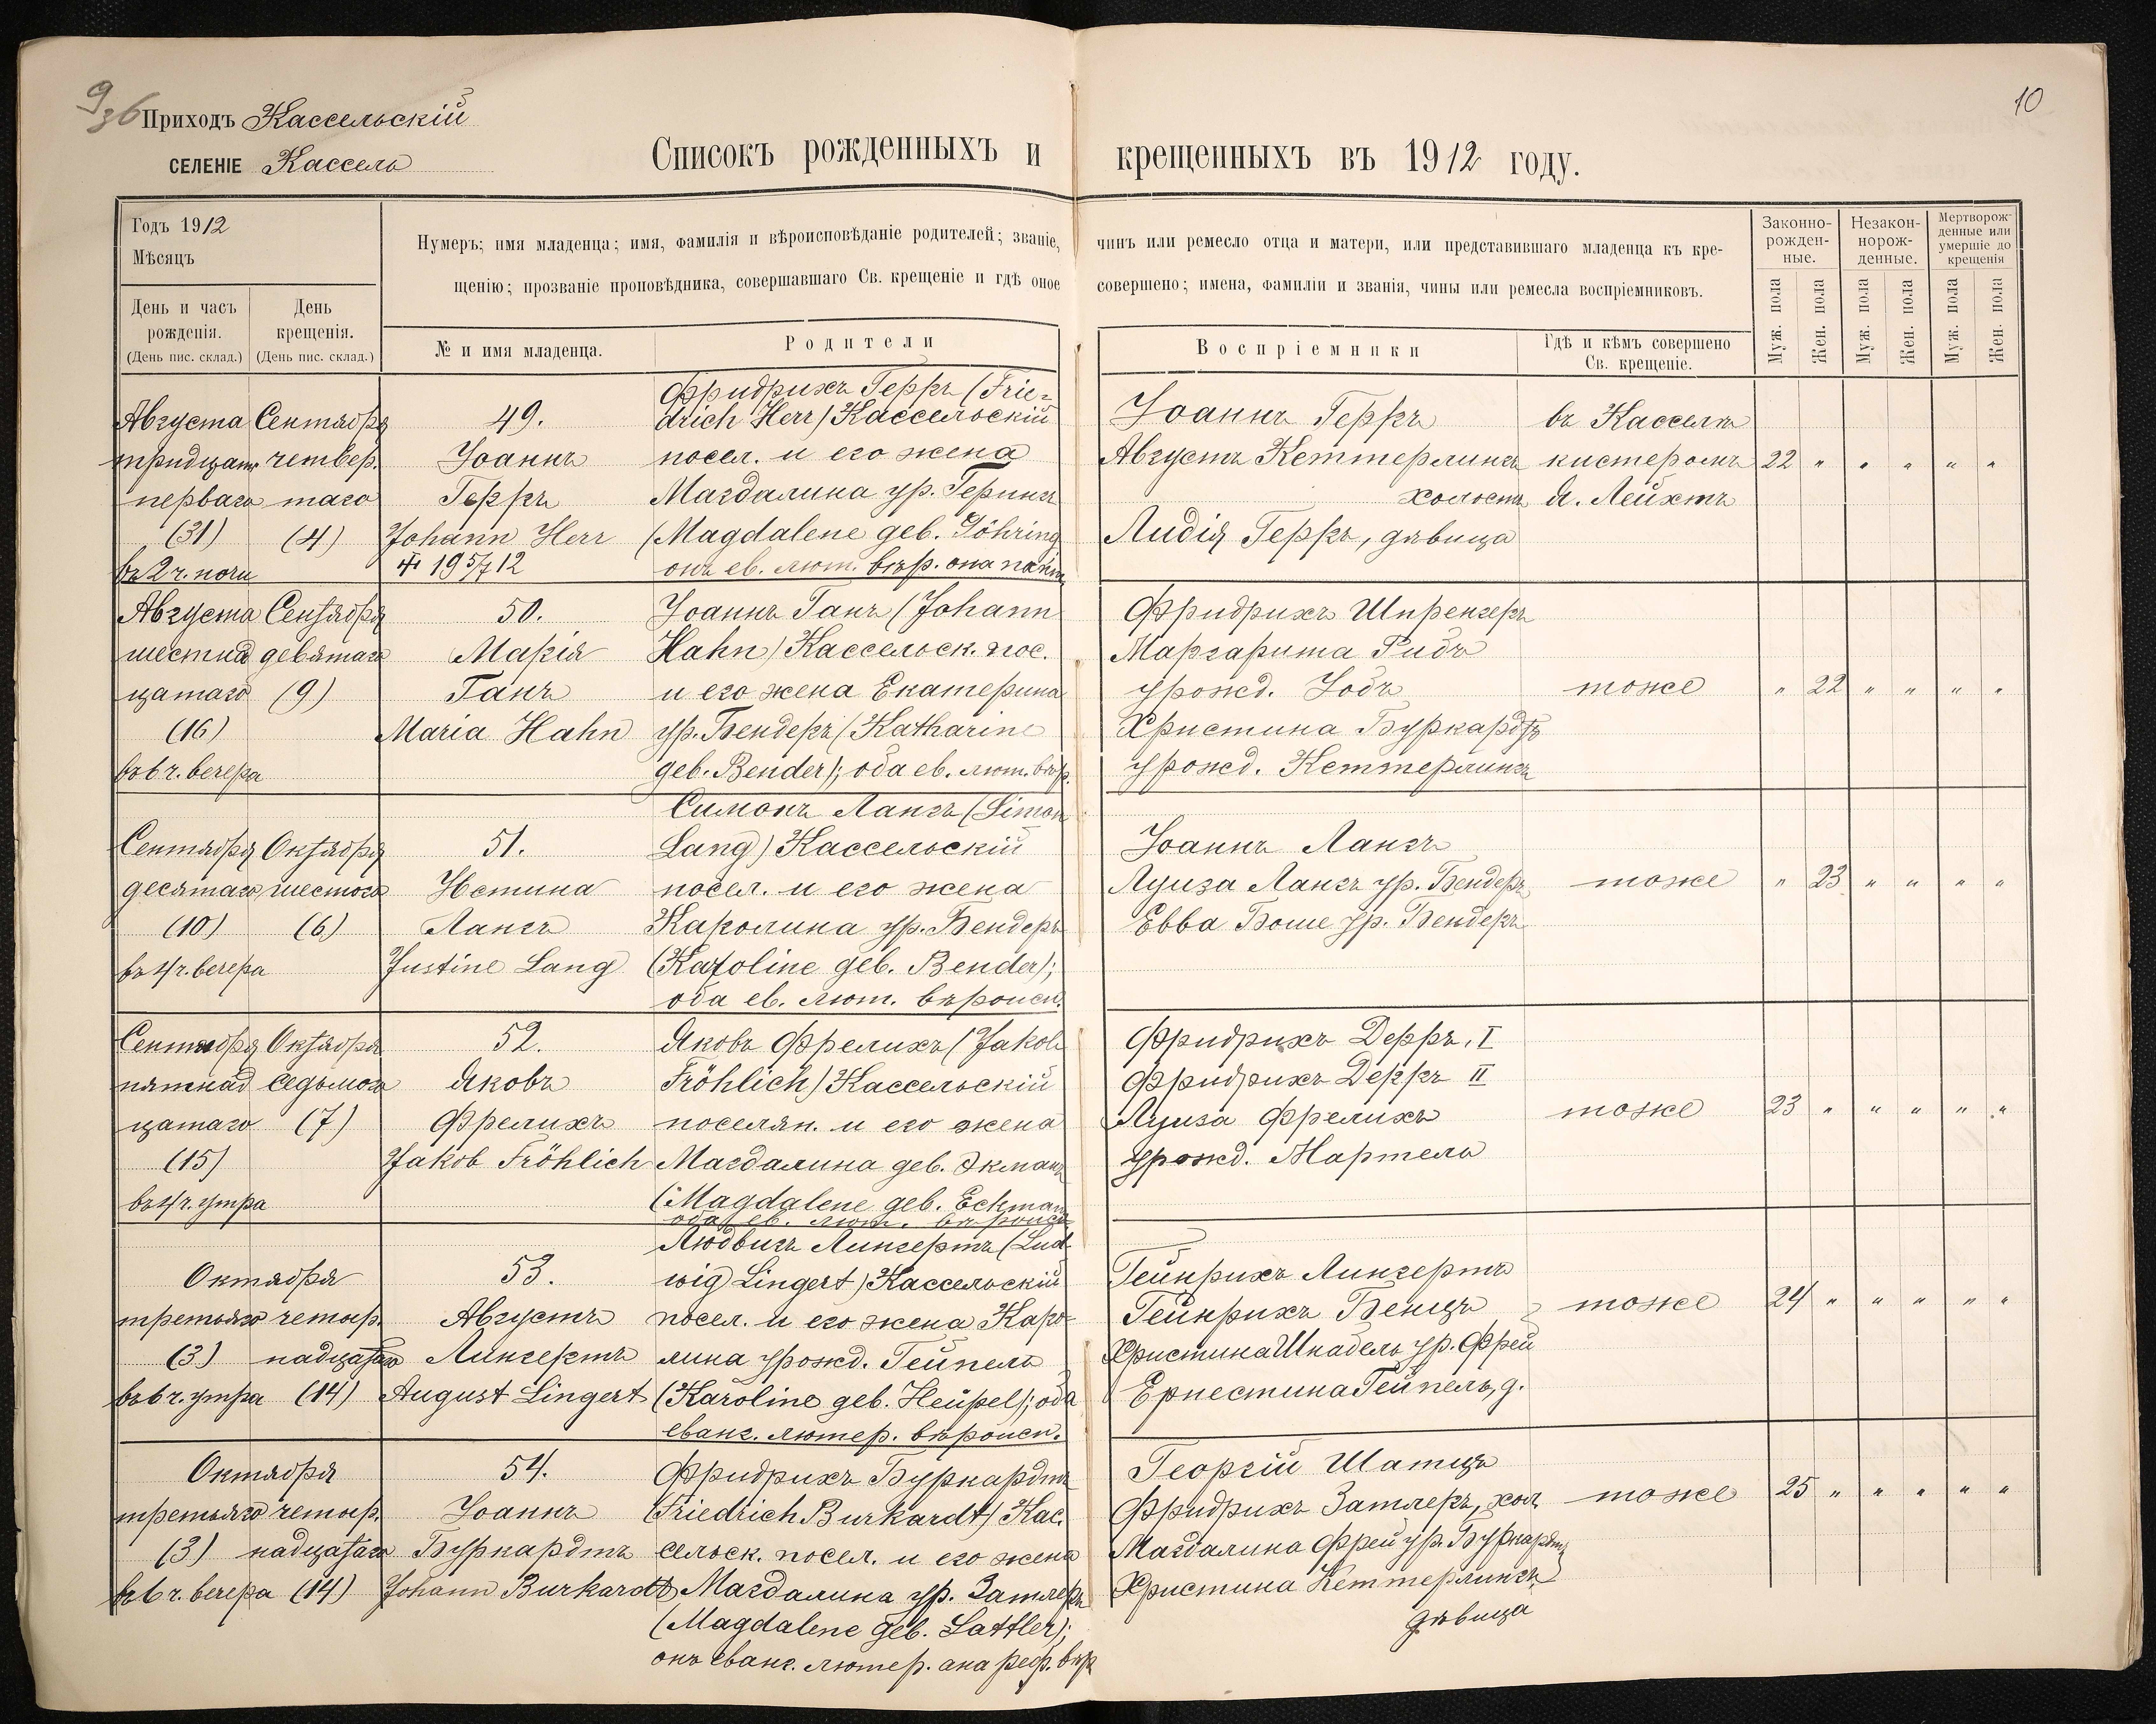 9об
10
Приходъ Кассельскій
СЕЛЕНІЕ Кассель
Списокъ рожденныхъ и крещенныхъ въ 1912 году.
Годъ 1912
Мѣсяцъ
День и часъ рожденія.
(День пис. склад.)
День крещенія.
(День пис. склад.)
Нумеръ; имя младенца; имя, фамилія и вѣроисповѣданіе родителей; званіе, чинъ или ремесло отца и матери, или представившаго младенца къ кре-
щенію; прозваніе проповѣдника, совершавшаго Св. крещеніе и гдѣ оное совершено; имена, фамиліи и званія, чины или ремесла воспріемниковъ.
№ и имя младенца.
Родители
Воспріемники
Гдѣ и кѣмъ совершено
Св. крещеніе.
Законно-
рожден-
ные.
Незакон-
норож-
денные.
Мертворож-
денные или
умершіе до
крещенія
Муж. пола
Жен. пола
Муж. пола
Жен. пола
Муж. пола
Жен. пола
Августа
тридцать
перваго
(31)
въ 2 ч. ночи
Сентября
четвер.
таго
(4)
49.
Іоаннъ
Герръ
Johann Herr
19 5/7 12
Фридрихъ Герръ (Frie-
drich Herr) Кассельскій
посел. и его жена
Магдалина ур. Герингъ
(Magdalene geb. Göhring
онъ ев. лют. вѣр. она
Іоаннъ Герръ
Августъ Кеттерлингъ
холостъ
Лидія Герръ, дѣвица
въ Касселѣ
кистеромъ
Я. Лейхтъ
22 " " " " "
Августа
шестнад
цатаго
(16)
въ 6 ч. вечера
Сентября
девятаго
(9)
50.
Марія
Ганъ
Maria Hahn
Іоаннъ Ганъ (Johann
Hahn) Кассельск. пос.
и его жена Екатерина
ур. Бендеръ (Katharine
geb. Bender); оба ев. лют. вѣр.
Фридрихъ Шпренгеръ
Маргарита Рибъ
урожд. Іобъ
Христина Буркардтъ
урожд. Кеттерлингъ
тоже
" 22 " " " "
Сентября
десятаго
(10)
въ 4 ч. вечера
Октября
шестого
(6)
51.
Юстина
Лангъ
Justine Lang
Симонъ Лангъ (Simon
Lang) Кассельскій
посел. и его жена
Каролина ур. Бендеръ
(Karoline geb. Bender);
оба ев. лют. вѣроисп.
Іоаннъ Лангъ
Луиза Лангъ ур. Бендеръ
Евва Боше ур. Бендеръ
тоже
" 23 " " " "
Сентября
пятнад
цатаго
(15)
въ 4 ч. утра
Октября
седьмого
(7)
52.
Яковъ
Фрелихъ
Jakob Fröhlich
Яковъ Фрелихъ (Jakob
Fröhlich) Кассельскій
поселян. и его жена
Магдалина geb. Экманъ
(Magdalene geb. Eckmann
оба ев. лют. вѣроисп.
Фридрихъ Дерръ, I
Фридрихъ Дерръ II
Луиза Фрелихъ
урожд. Мартель
тоже
23 " " " " "
Октября
третьяго
(3)
въ 6 ч. утра
четыр.
надцатаго
(14)
53.
Августъ
Лингертъ
August Lingert
Людвигъ Лингертъ (Lud-
wig Lingert) Кассельскій
посел. и его жена Каро-
лина урожд. Гейпель
(Karoline geb. Heüpel); оба
еванг. лютер. вѣроисп.
Гейнрихъ Лингертъ
Гейнрихъ Бенцъ
Христина Шнабель ур. Фрей
Ернестина Гейпель, д.
тоже
24 " " " " "
Октября
третьяго
(3)
въ 6 ч. вечера
четыр.
надцатаго
(14)
54.
Іоаннъ
Буркардтъ
Johann Burkardt
Фридрихъ Буркардтъ
(Friedrich Burkardt) Кас.
сельск. посел. и его жена
Магдалина ур. Затлеръ
(Magdalene geb. Sattler);
онъ еванг. лютер. она реф. вѣр
Георгій Шатцъ
Фридрихъ Затлеръ, хол
Магдалина Фрей ур. Буркардтъ
Христина Кеттерлингъ
дѣвица
тоже
25 " " " " "